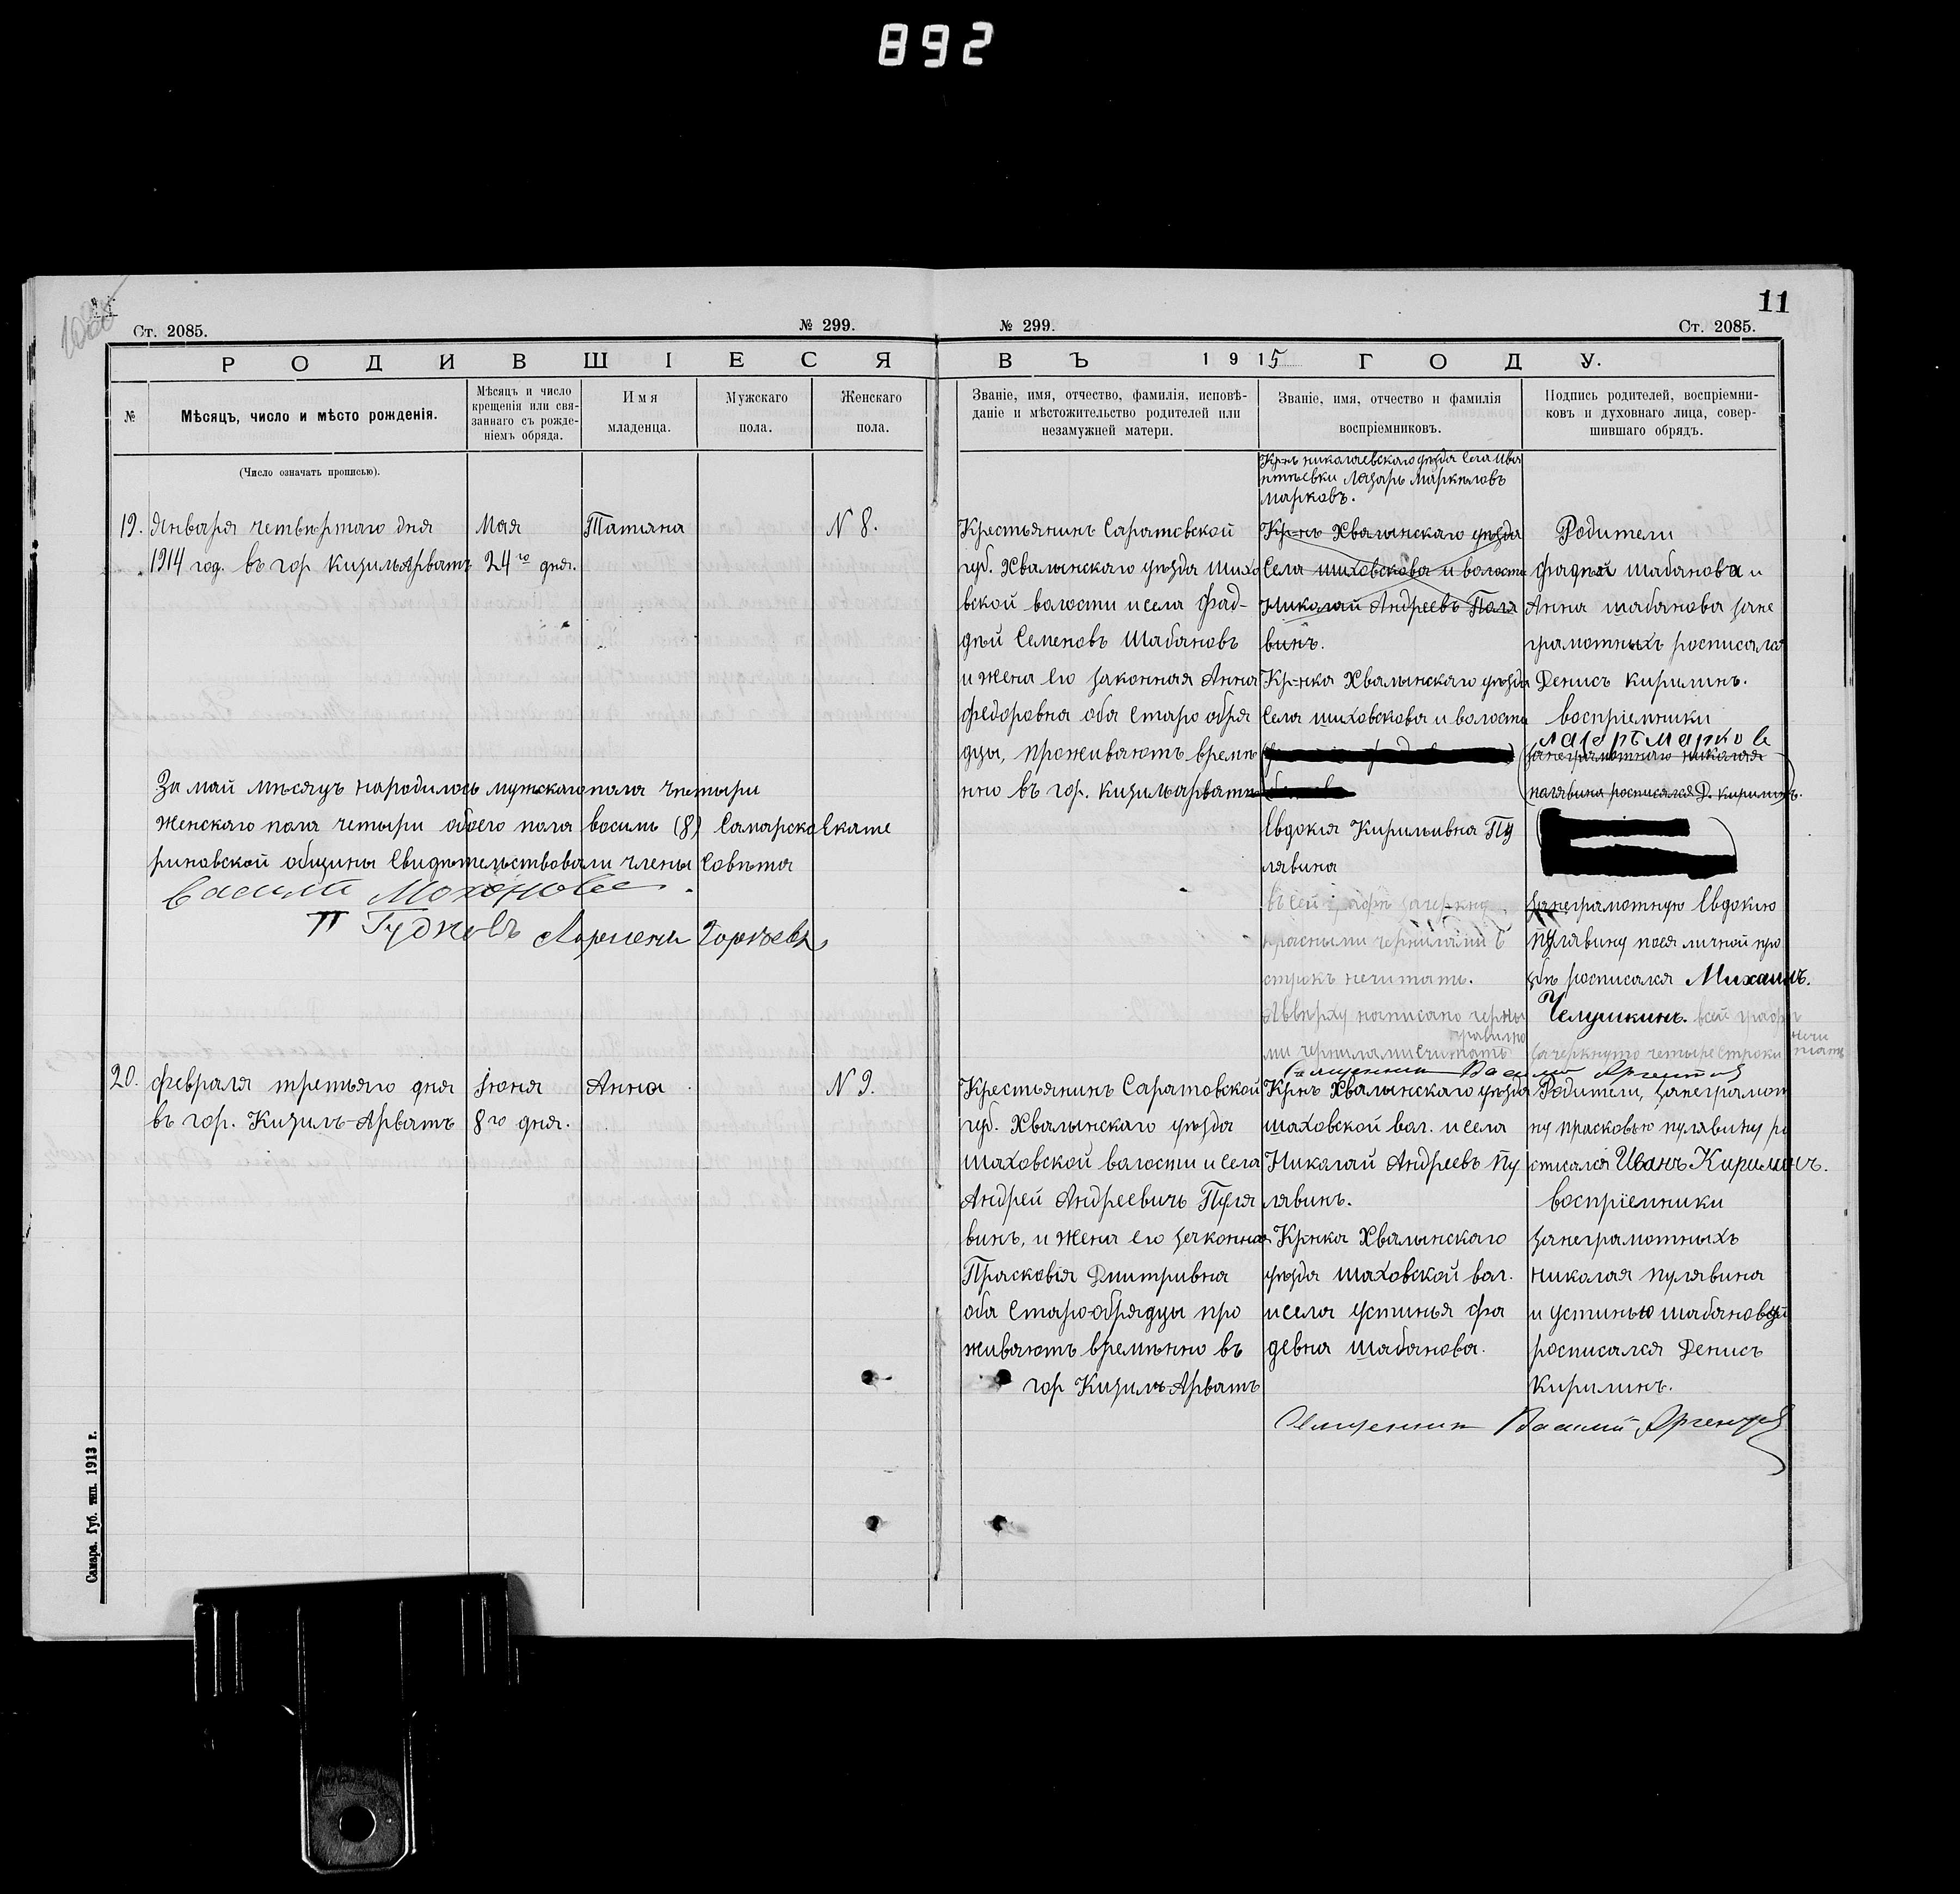 892
11
Ст. 2085.
№ 299.
№ 299.
Ст. 2085.
РОДИВШІЕСЯ
ВЪ 1915 ГОДУ.
№
Мѣсяцъ, число и мѣсто рожденія.
Мѣсяцъ и число
крещенія или свя-
заннаго съ рожде-
ніемъ обряда.
Имя
младенца.
Мужскаго
пола.
Женскаго
пола.
Званіе, имя, отчество, фамилія, исповѣ-
даніе и мѣстожительство родителей или
незамужней матери.
Званіе, имя, отчество и фамилія
воспріемниковъ.
Подпись родителей, воспріемни-
ковъ и духовнаго лица, совер-
шившаго обрядъ.
(Число означать прописью).
19.
Января четвертаго дня
1914 год. въ гор Кизилъ Арватъ
Мая
24го дня.
Татьяна
N 8.
Крестьянинъ Саратовской
губ. Хвалынскаго уѣзда Шихо
вской волости и села Фад-
дѣй Семеновъ Шабановъ
и жена его законная Анна
Федоровна оба старообря
дцы, проживаютъ времѣ
нно въ гор. Кизилъ арватѣ
Кр-нъ Николаевскаго уѣзда села Ива
нтѣевки Лазарь Маркеловъ
Марковъ.
Кр-нъ Хвалынскаго уѣзда
села шиховскова и волости
Николай Андреевъ Поля
винъ.
Кр-нка Хвалынскаго уѣзда
села шиховскова и волости
Евдокія Кирильивна Пу
лявина
красными чернилами 6
строкъ нечитать.
Ввѣрху написано черны
ми чернилами считать
правилно
Родители
Фадѣй Шабановъ и
Анна шабанова зане
грамотныхъ росписался
Денисъ Кирилинъ.
воспріемники
Лазорь Марковъ
занеграмотнаго николая
полявина росписался Д. Кирилинъ.
занеграмотную Евдокію
Пулявину поея личной про
збѣ росписался Михаилъ.
Челушкинъ. всей графѣ
зачеркнуто четыре строки
нечи
тать
Священник Василий Аргентов
За май мѣсяцъ народилось мужскаго пола четыри
Женскаго пола четыри обоего пола восимь (8) Самарско Екате
риновской общины Свидѣтельствовали члены Совѣта
П Гудковъ
20.
Февраля третьяго дня
въ гор. Кизилъ-Арватъ
Іюня
8го дня.
Анна
N 9.
Крестьянинъ Саратовской
губ. Хвалынскаго уѣзда
шаховской волости и села
Андрей Андреевичъ Пуля
винъ, и жена его законная
Прасковія Дмитривна
оба Старо-обрядцы про
живаютъ времѣнно въ
гор Кизилъ Арватъ
Крнъ Хвалынскаго уѣзда
шаховской вол. и села
Николай Андреевъ Пу
лявинъ.
Крнка Хвалынскаго
уѣзда шаховской вол.
и села Устинья Фа
девна шабанова.
Родители, занеграмот
ну прасковью пулявину ро
списался Иванъ Кирилинъ.
воспріемники
занеграмотныхъ
николая пулявина
и устинью шабановой
росписался Денисъ
Кирилинъ.
Священник Василий Аргентов
Самара. Губ. тип. 1913 г.